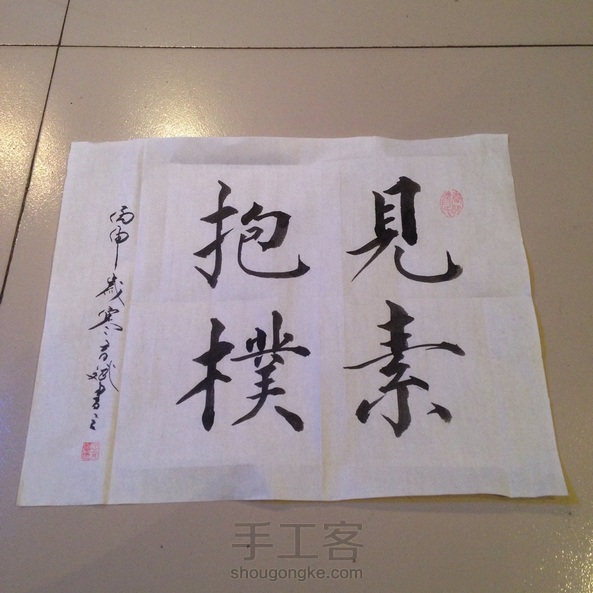 見素
抱樸
丙申歲寒
書
手工客
shougongke.com